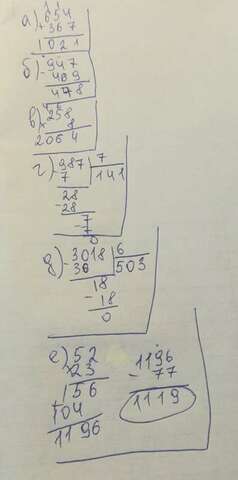 а) 654
+ 367
1021
б) 947
- 469
478
в) 258
× 8
2064
г) 987 | 7
- 7 141
28
- 28
7
- 7
0
д) 3018 | 6
- 30 503
18
- 18
0
е) 52 1196
× 23 - 77
156 1119
104
1196